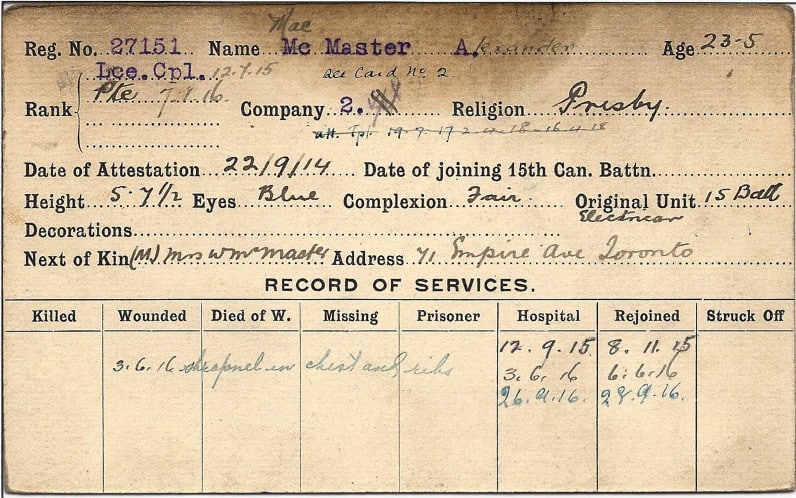 Mac
Reg. No. 27151 Name Mc Master A.lexander Age 23-5
Lce. Cpl. 12.7.15 See Card No 2
Rank Pte 7.1.16 Company 2. Religion Presby
att. Tpt. 19.9.17 2-4-18-16-4-18
Date of Attestation 22/9/14 Date of joining 15th Can. Battn.
Height 5.7 1/2 Eyes Blue Complexion Fair Original Unit 15 Batt
Electrican
Decorations
Next of Kin (M) Mrs W McMaster Address 71 Empire Ave Toronto
RECORD OF SERVICES.
Killed Wounded Died of W. Missing Prisoner Hospital Rejoined Struck Off
12.9.15 8.11.15
3.6.16 shrapnel in chest and ribs 3.6.16 6.6.16
26.9.16. 28.9.16.